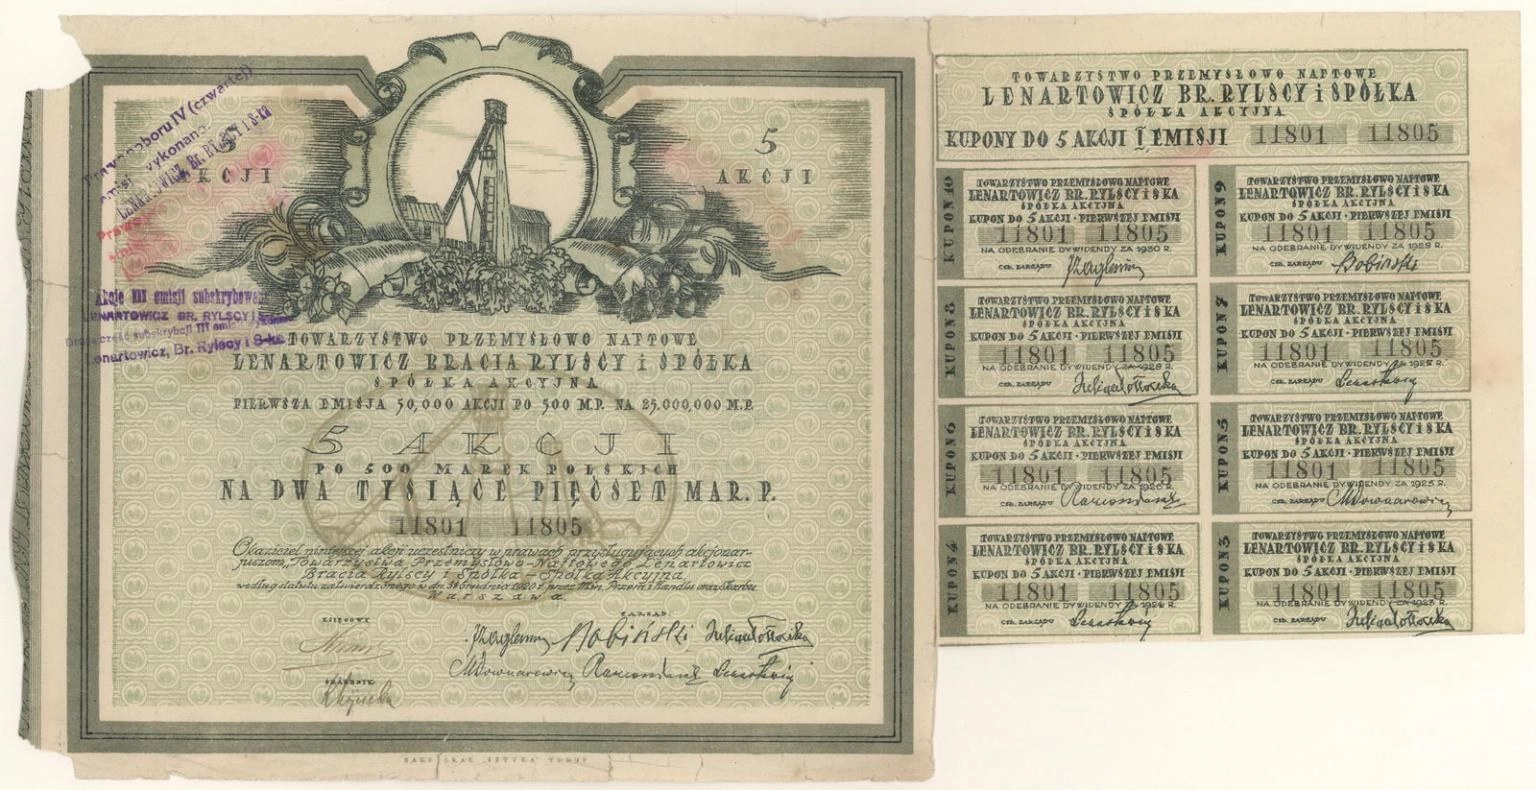 5
AKCJI
5
AKCJI
Akcje III emisji subskrybowan
LENARTOWICZ BR. RYLSCY i S
subskrybcji III emisji
Lenartowicz, Br. Rylscy i S-ka
TOWARZYSTWO PRZEMYSŁOWO NAFTOWE
LENARTOWICZ BRACIA RYLSCY i SPÓŁKA
SPÓŁKA AKCYJNA
PIERWSZA EMISJA 50,000 AKCJI PO 500 M.P. NA 25.000,000 M.P.
5 AKCJI
PO 500 MAREK POLSKICH
NA DWA TYSIĄCE PIĘĆSET MAR. P.
11801 11805
Okaziciel niniejszej akcji uczestniczy w prawach przysługujących akcjonar-
juszom „Towarzystwa Przemysłowo-Naftowego Lenartowicz
Bracia Rylscy i Spółka - Spółka Akcyjna,
według statutu zatwierdzonego w dn. 31 Grudnia 1920 r. przez Min. Przem. i Handlu oraz Skarbu.
Warszawa.
KSIĘGOWY
ZARZĄD
SKARBNIK
TOWARZYSTWO PRZEMYSŁOWO NAFTOWE
LENARTOWICZ BR. RYLSCY i SPÓŁKA
SPÓŁKA AKCYJNA
KUPONY DO 5 AKCJI I EMISJI 11801 11805
KUPON 10
TOWARZYSTWO PRZEMYSŁOWO NAFTOWE
LENARTOWICZ BR. RYLSCY i S KA
SPÓŁKA AKCYJNA
KUPON DO 5 AKCJI · PIERWSZEJ EMISJI
11801 11805
NA ODEBRANIE DYWIDENDY ZA 1930 R.
CZŁ. ZARZĄDU
KUPON 9
TOWARZYSTWO PRZEMYSŁOWO NAFTOWE
LENARTOWICZ BR. RYLSCY i S KA
SPÓŁKA AKCYJNA
KUPON DO 5 AKCJI · PIERWSZEJ EMISJI
11801 11805
NA ODEBRANIE DYWIDENDY ZA 1929 R.
CZŁ. ZARZĄDU Bobiński
KUPON 8
TOWARZYSTWO PRZEMYSŁOWO NAFTOWE
LENARTOWICZ BR. RYLSCY i S KA
SPÓŁKA AKCYJNA
KUPON DO 5 AKCJI · PIERWSZEJ EMISJI
11801 11805
NA ODEBRANIE DYWIDENDY ZA 1928 R.
CZŁ. ZARZĄDU
KUPON 7
TOWARZYSTWO PRZEMYSŁOWO NAFTOWE
LENARTOWICZ BR. RYLSCY i S KA
SPÓŁKA AKCYJNA
KUPON DO 5 AKCJI · PIERWSZEJ EMISJI
11801 11805
NA ODEBRANIE DYWIDENDY ZA
CZŁ. ZARZĄDU
KUPON 6
TOWARZYSTWO PRZEMYSŁOWO NAFTOWE
LENARTOWICZ BR. RYLSCY i S KA
SPÓŁKA AKCYJNA
KUPON DO 5 AKCJI · PIERWSZEJ EMISJI
11801 11805
NA ODEBRANIE DYWIDENDY ZA 1926 R.
CZŁ. ZARZĄDU
KUPON 5
TOWARZYSTWO PRZEMYSŁOWO NAFTOWE
LENARTOWICZ BR. RYLSCY i S KA
SPÓŁKA AKCYJNA
KUPON DO 5 AKCJI · PIERWSZEJ EMISJI
11801 11805
NA ODEBRANIE DYWIDENDY ZA 1925 R.
CZŁ. ZARZĄDU
KUPON 4
TOWARZYSTWO PRZEMYSŁOWO NAFTOWE
LENARTOWICZ BR. RYLSCY i S KA
SPÓŁKA AKCYJNA
KUPON DO 5 AKCJI · PIERWSZEJ EMISJI
11801 11805
NA ODEBRANIE DYWIDENDY ZA 1924 R.
CZŁ. ZARZĄDU
KUPON 3
TOWARZYSTWO PRZEMYSŁOWO NAFTOWE
LENARTOWICZ BR. RYLSCY i S KA
SPÓŁKA AKCYJNA
KUPON DO 5 AKCJI · PIERWSZEJ EMISJI
11801 11805
NA ODEBRANIE DYWIDENDY ZA 1923 R.
CZŁ. ZARZĄDU